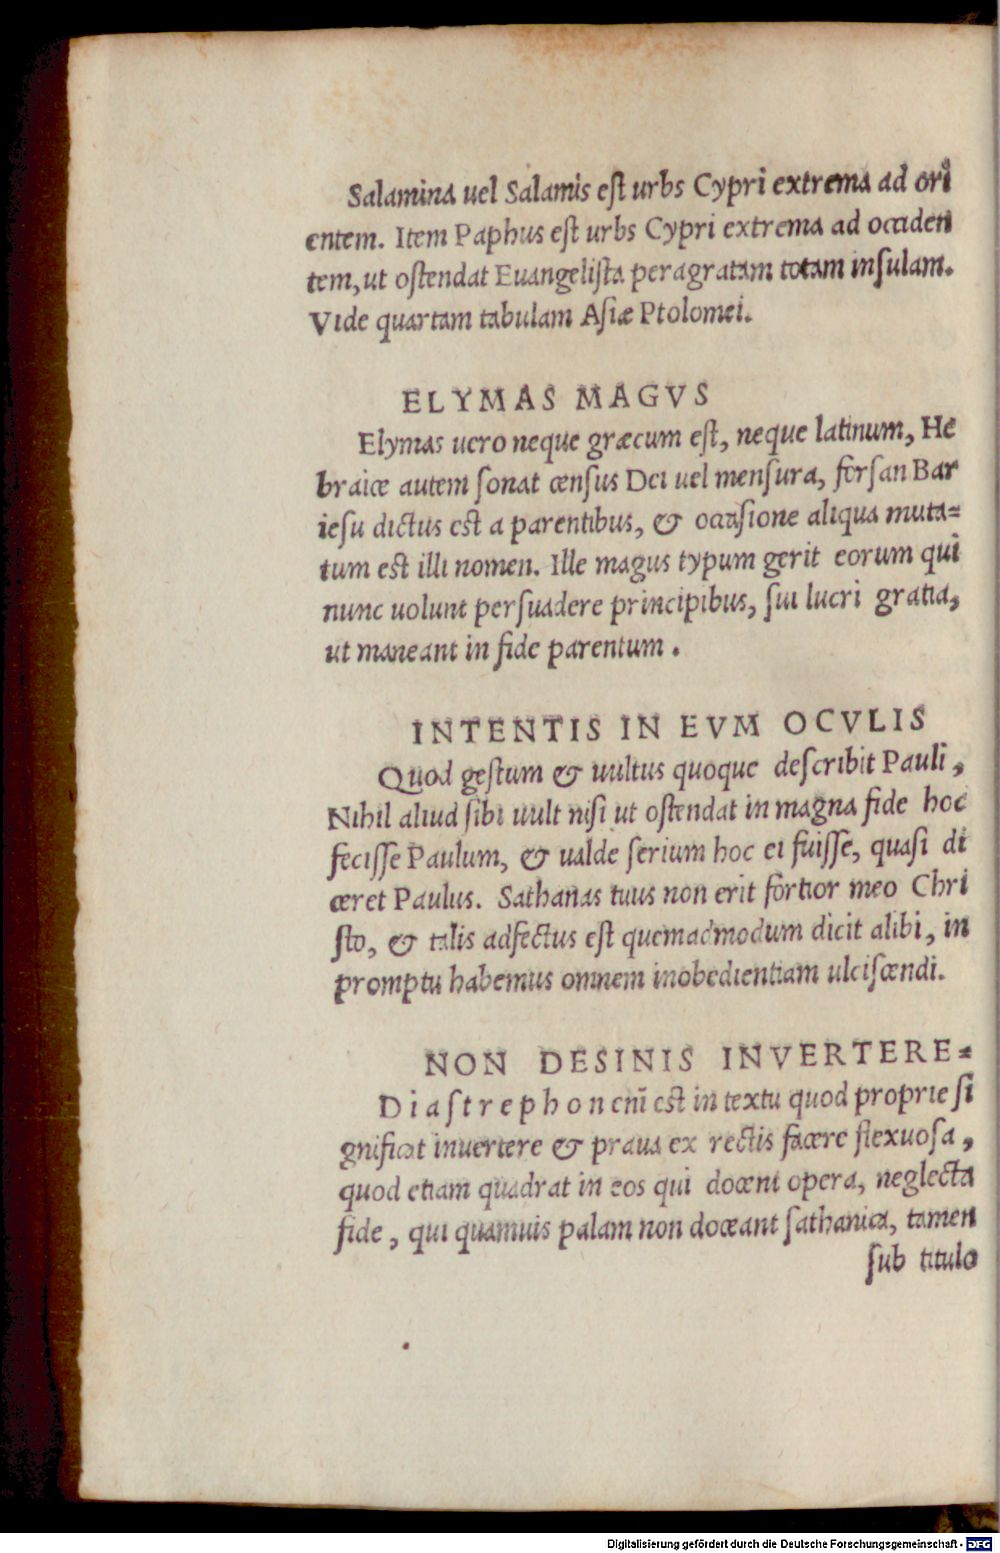 Salamina uel Salamis est urbs Cypri extrema ad ori
entem. Item Paphus est urbs Cypri extrema ad occiden
tem, ut ostendat Euangelista peragratam totam insulam.
Vide quartam tabulam Asiæ Ptolomei.
ELYMAS MAGVS
Elymas uero neque græcum est, neque latinum, He
braice autem sonat census Dei uel mensura, forsan Bar
iesu dictus est a parentibus, & occasione aliqua muta=
tum est illi nomen. Ille magus typum gerit eorum qui
nunc uolunt persuadere principibus, sui lucri gratia,
ut maneant in fide parentum.
INTENTIS IN EVM OCVLIS
Quod gestum & uultus quoque describit Pauli,
Nihil aliud sibi uult nisi ut ostendat in magna fide hoc
fecisse Paulum, & ualde serium hoc ei fuisse, quasi di
ceret Paulus. Sathanas tuus non erit fortior meo Chri
sto, & talis adfectus est quemadmodum dicit alibi, in
promptu habemus omnem inobedientiam ulciscendi.
NON DESINIS INVERTERE=
Diastrephon em̄ est in textu quod proprie si
gnificat inuertere & praua ex rectis facere flexuosa,
quod etiam quadrat in eos qui docent opera, neglecta
fide, qui quamuis palam non doceant sathanica, tamen
sub titulo
Digitalisierung gefördert durch die Deutsche Forschungsgemeinschaft - DFG